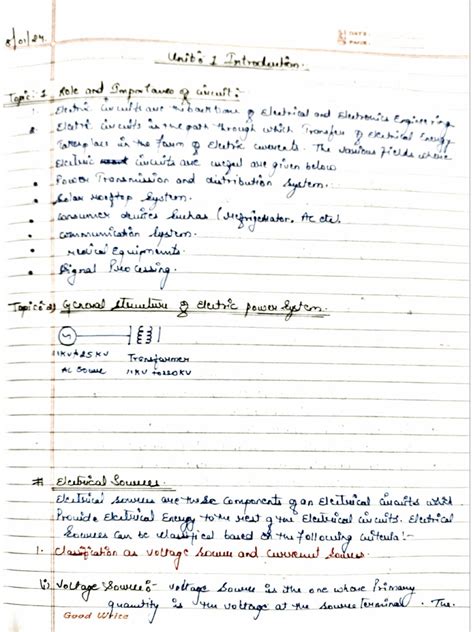 DATE:
PAGE:
8/01/24
Unit:- 1 Introduction.
Topic:-1. Role and Importance of circuit:-
1. Electric circuits are the backbone of Electrical and Electronics Engineering
2. Electric circuits is the path through which Transfer of electrical Energy
Takes place in the form of Electric currents. The various fields where
Electric circuits are useful are given below
• Power Transmission and distribution System.
• Solar rooftop System.
• consumer devices such as (refrigerator, AC etc).
• communication System.
• medical Equipments.
• Signal Processing.
Topic:-2) General structure of electric power System.
11KV to 25KV Transformer
AC Source 11KV to 220KV
# Electrical Sources.
Electrical sources are those components of an Electrical circuits which
Provide Electrical Energy to the rest of the Electrical circuits. Electrical
Sources can be classified based on the following criteria:-
1. Classification as voltage Source and current Source.
(i) Voltage Source:- voltage Source is the one where Primary
quantity is the voltage at the source terminal. The
Good Write